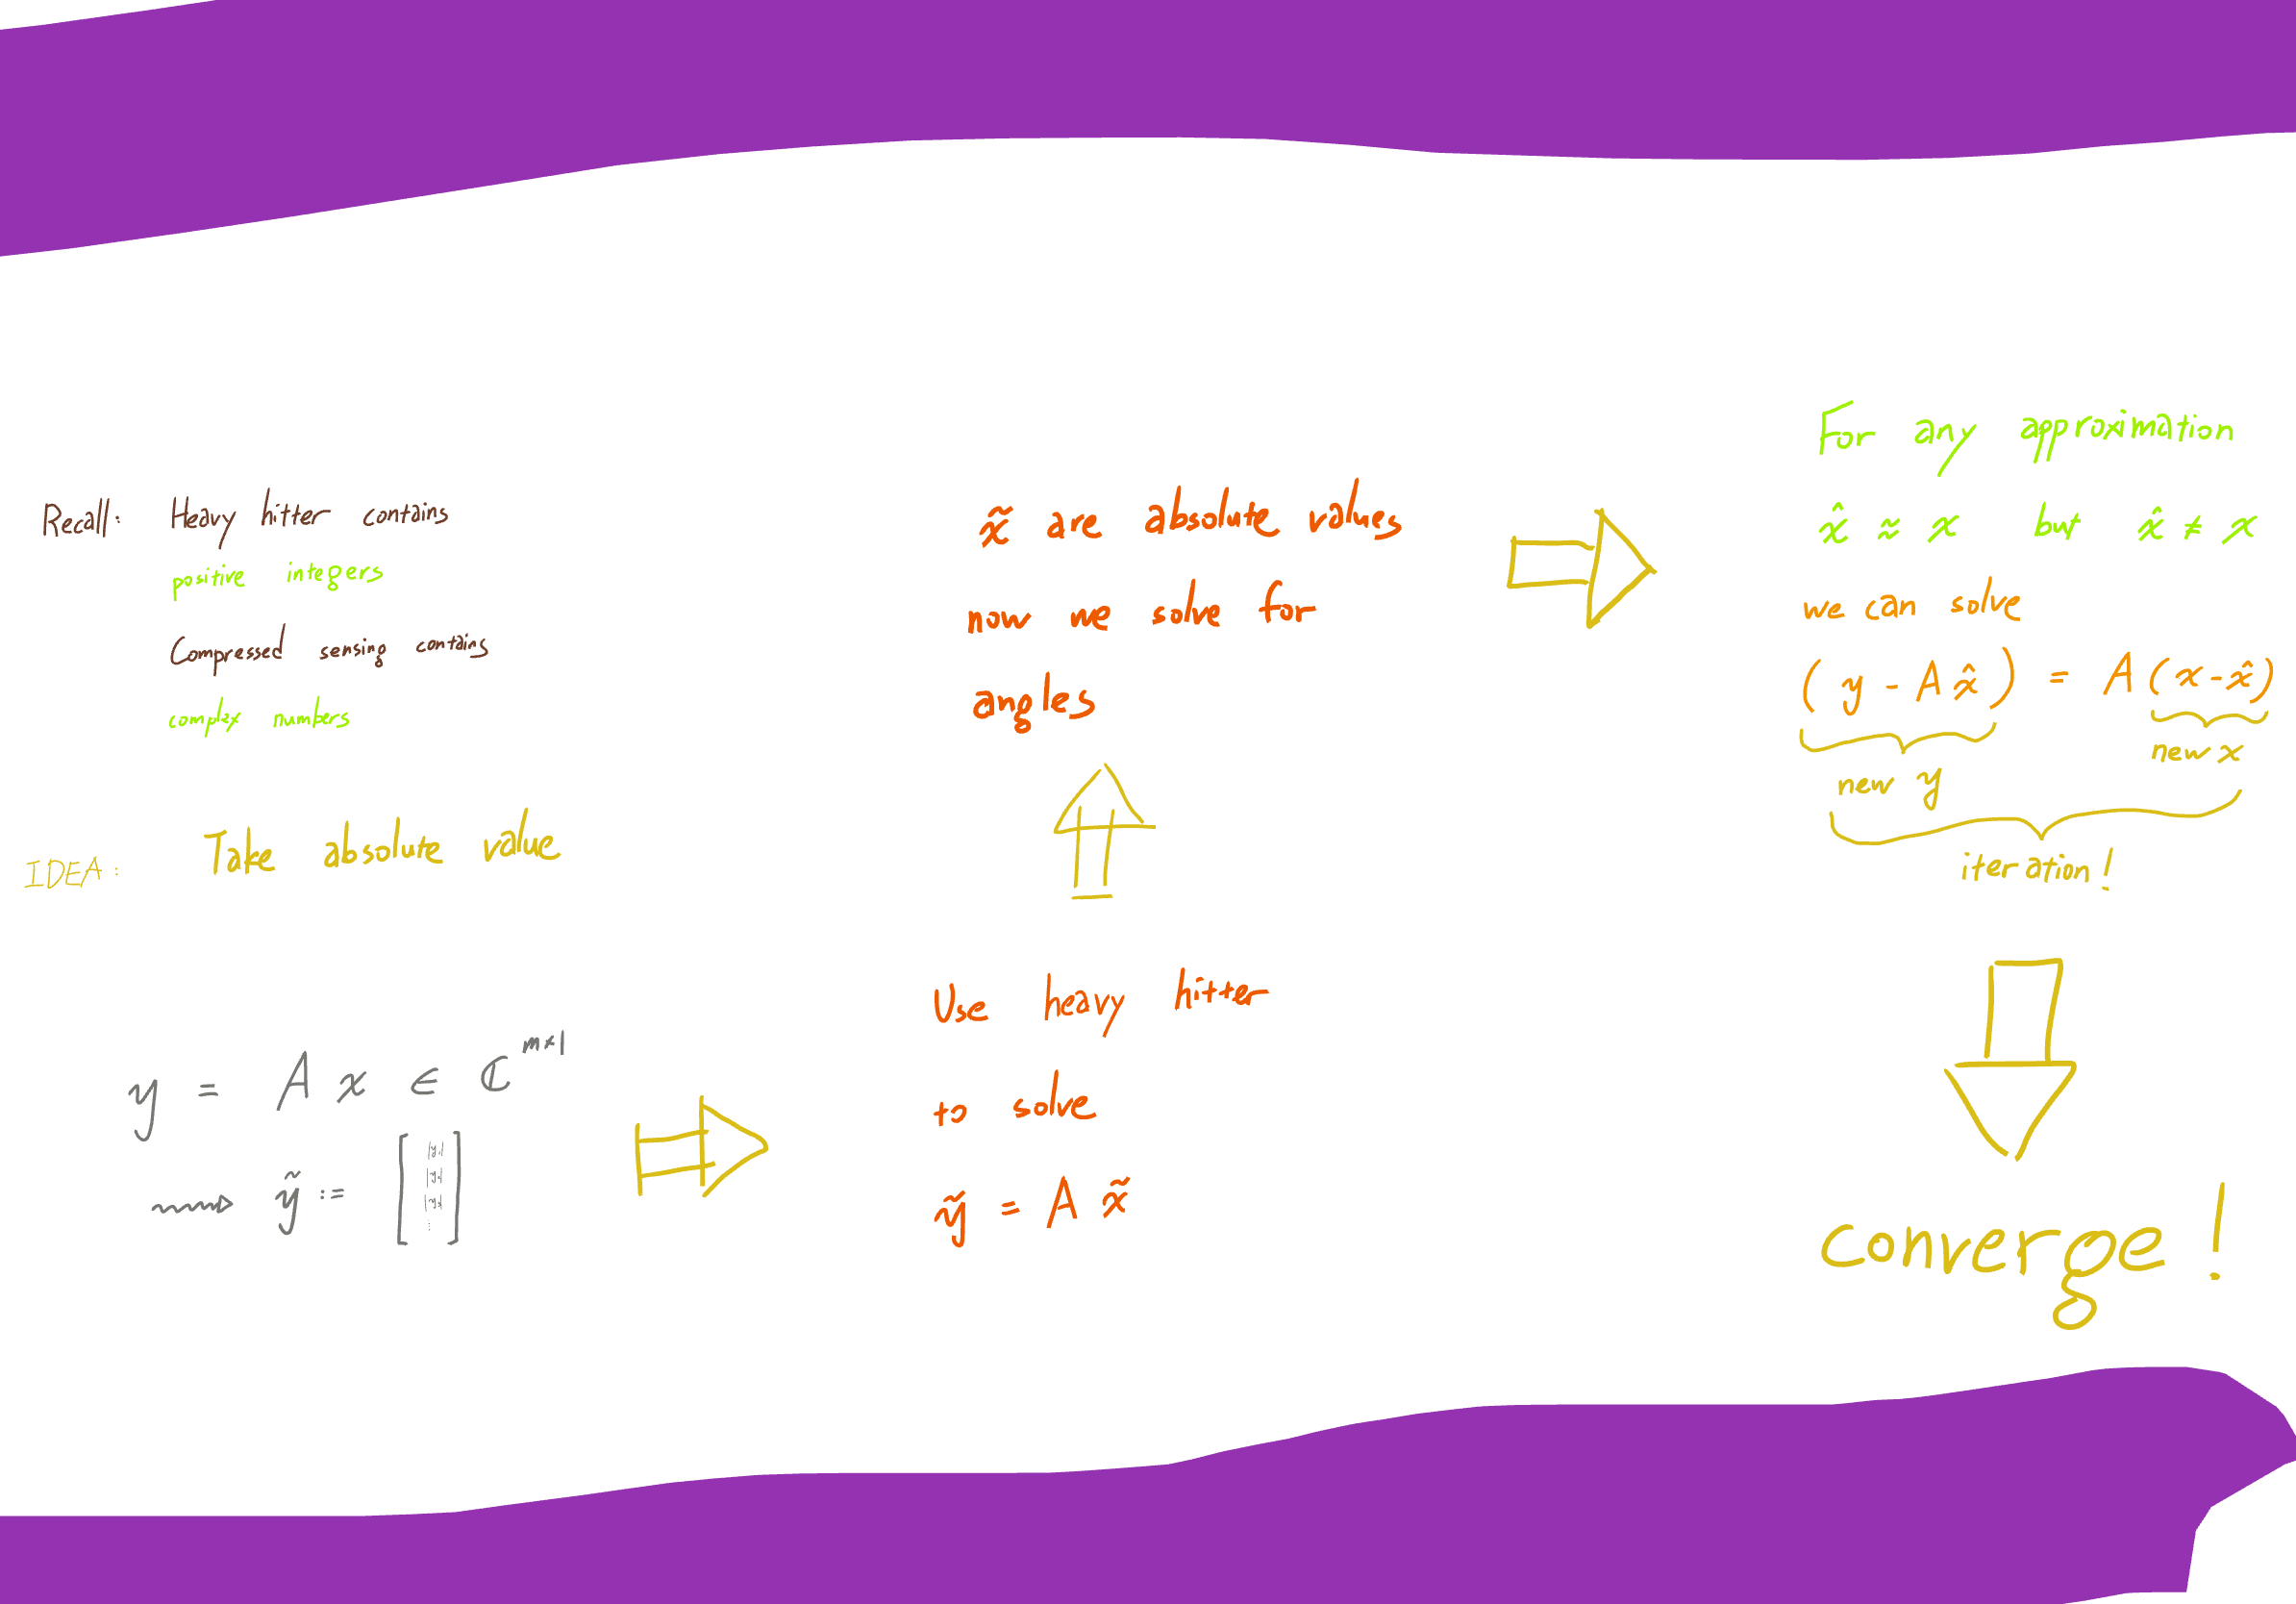 Recall: Heavy hitter contains
positive integers
Compressed sensing contains
complex numbers
IDEA: Take absolute value
y = A x ∈ ℂ^{m×1}
ỹ := [|y₁| |y₂| |y₃| ⋮]
Use heavy hitter
to solve
ỹ = A x̃
x̃ are absolute values
now we solve for
angles
For any approximation
x̂ ≈ x but x̂ ≠ x
we can solve
(y - A x̂) = A (x - x̂)
new x
new y
iteration!
converge!